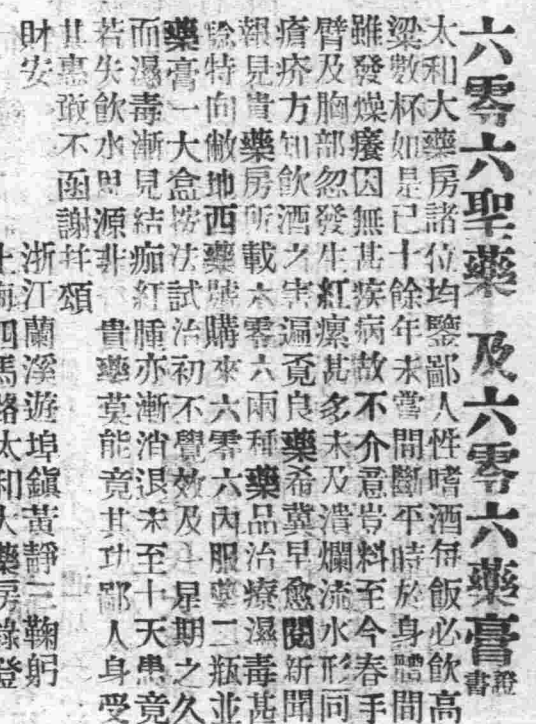 六零六聖藥 及六零六藥膏證書
太和大藥房諸位均鑒鄙人性嗜酒每飯必飲高
梁數杯如是已十餘年未嘗間斷平時於身體間
雖發燥癢因無甚疾病故不介意豈料至今春手
臂及胸部忽發生紅瘰甚多未及潰爛流水形同
瘡疥方知飲酒之害遍覓良藥希冀早愈閱新聞
報見貴藥房所載六零六兩種藥品治療濕毒甚
騐特向敝地西藥號購來六零六內服藥二瓶並
藥膏一大盒按法試治初不覺效及 星期之久
而濕毒漸見結痂紅腫亦漸消退未至十天患竟
若失飲水思源非 貴藥莫能竟其功鄙人身受
其惠敢不函謝幷頌
財安 浙江蘭溪遊埠鎭黃靜三鞠躬
上海四馬路太和大藥房錄登